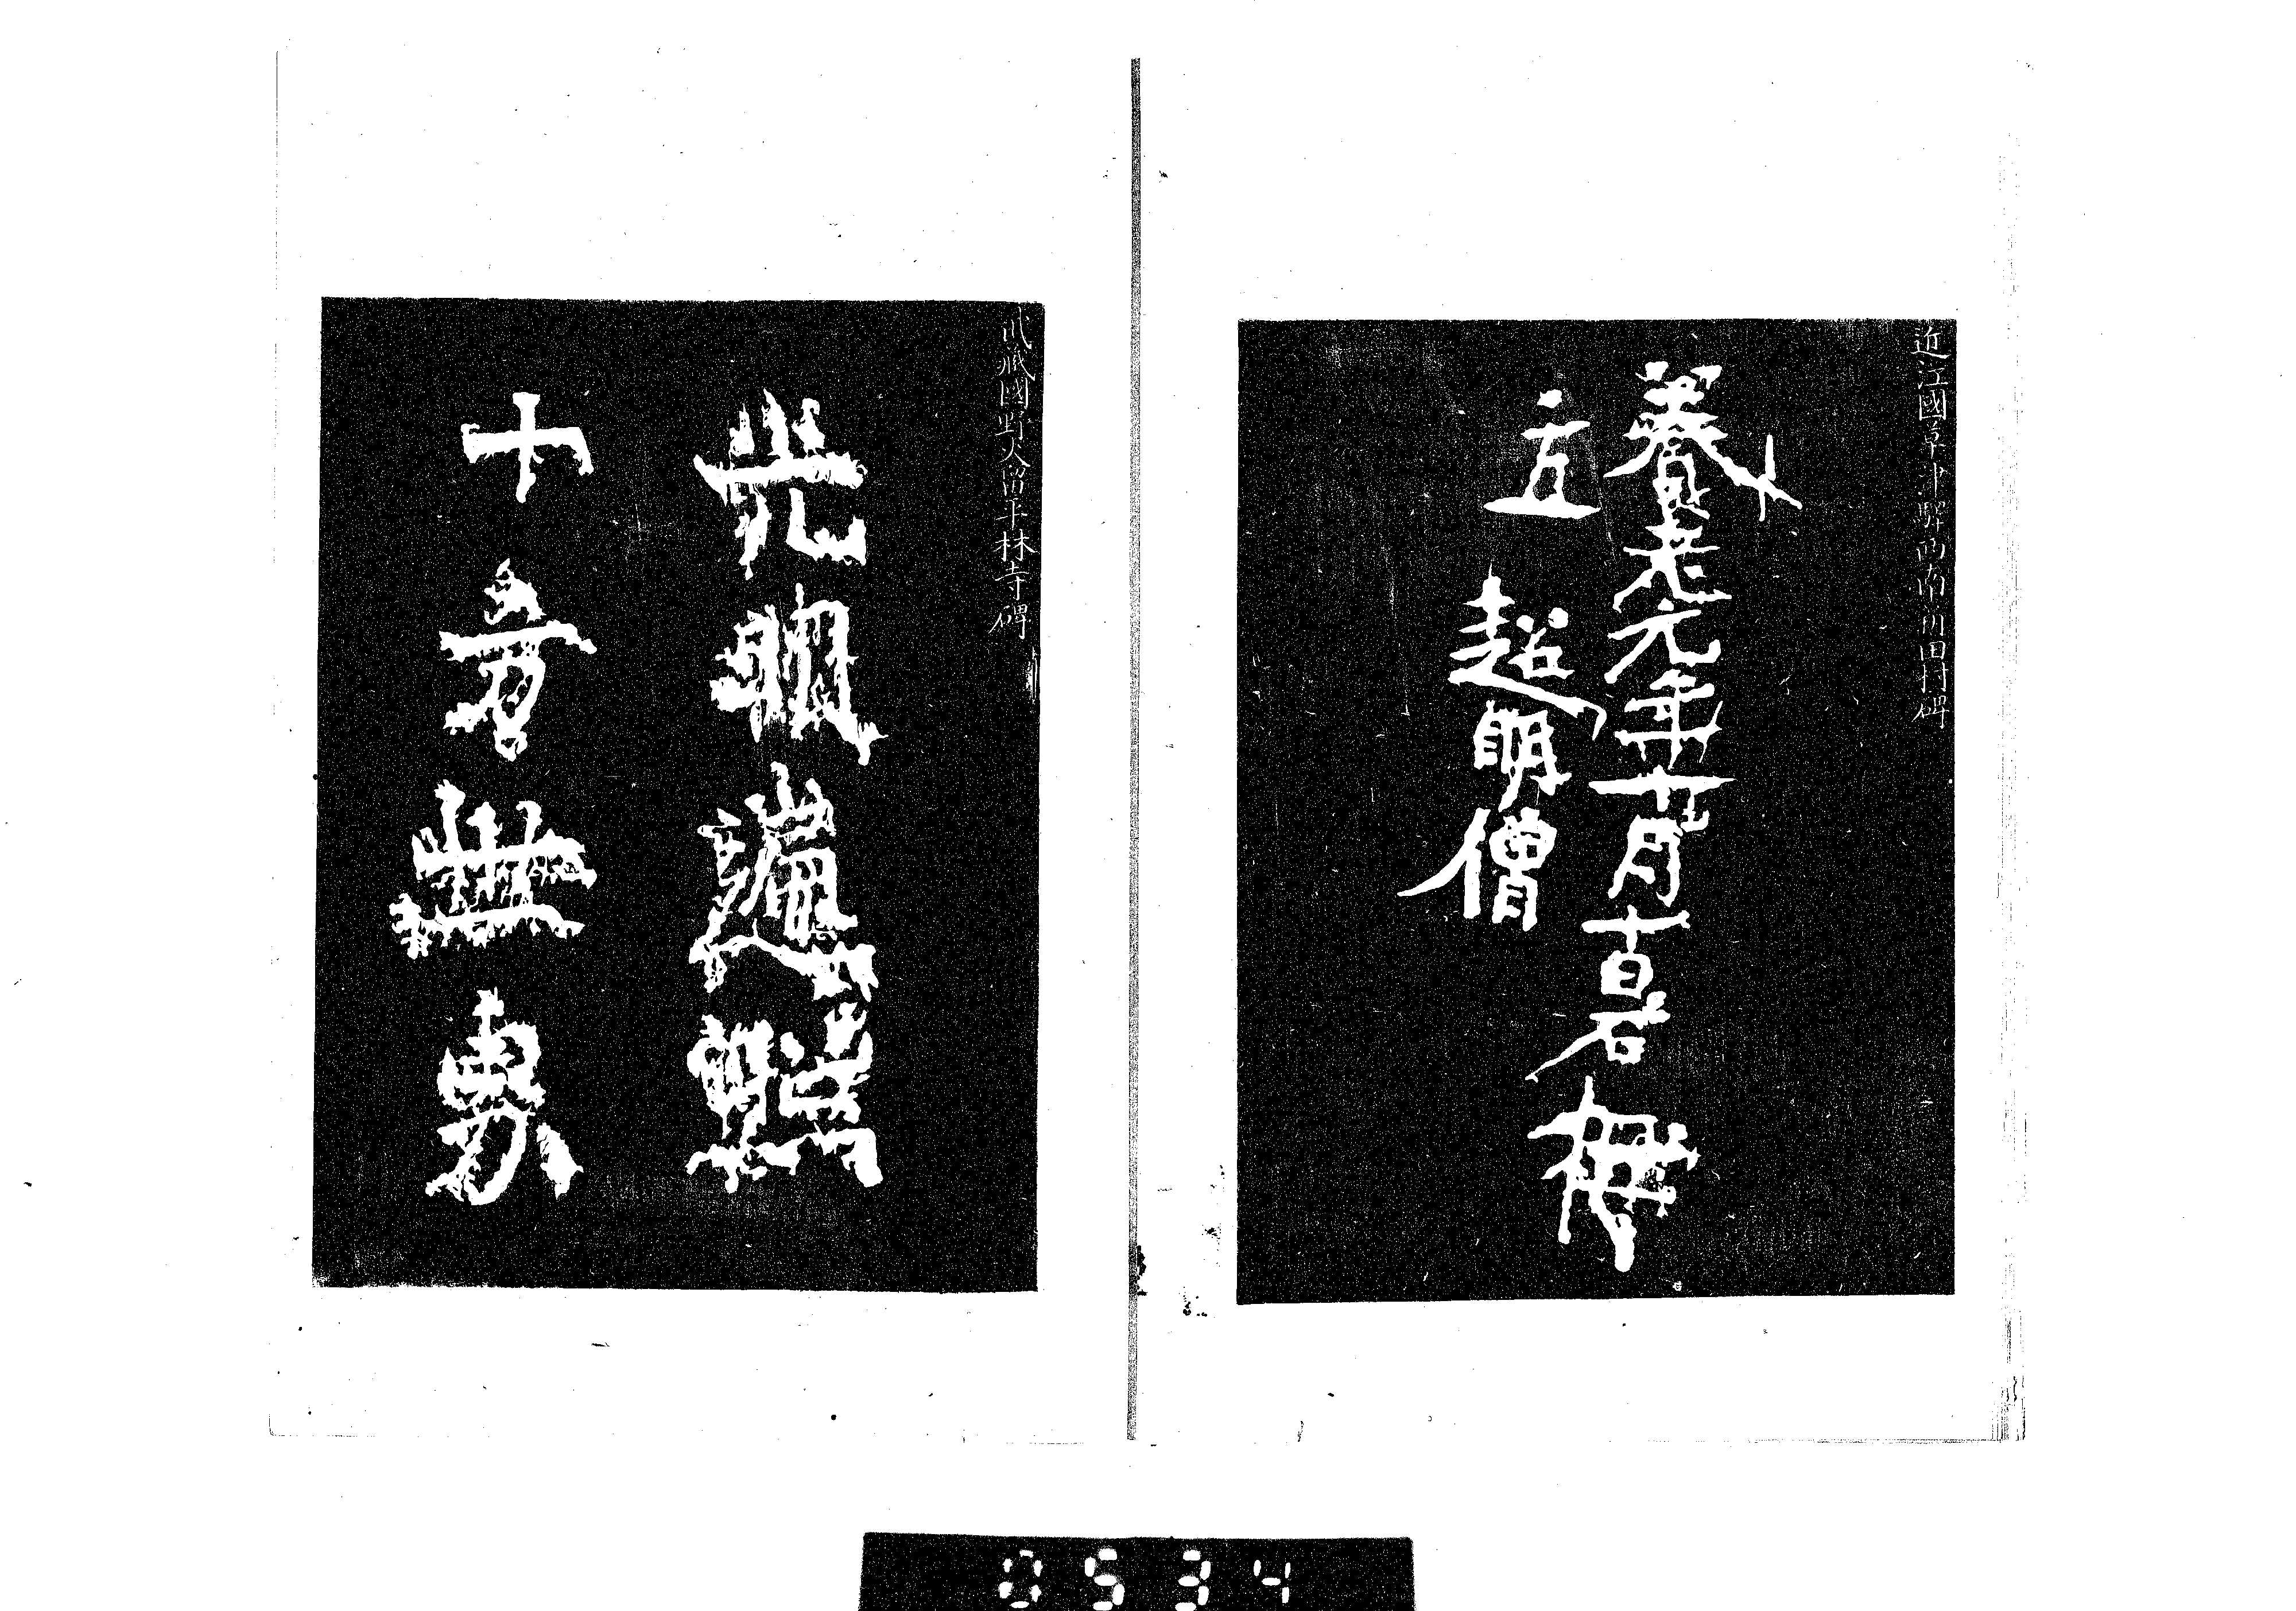 近江國草津驛西南川田村碑
養老元年十一月十二日石柱
立 超明僧
武藏國野火留平林寺碑
光明遍照
十方世界
0534